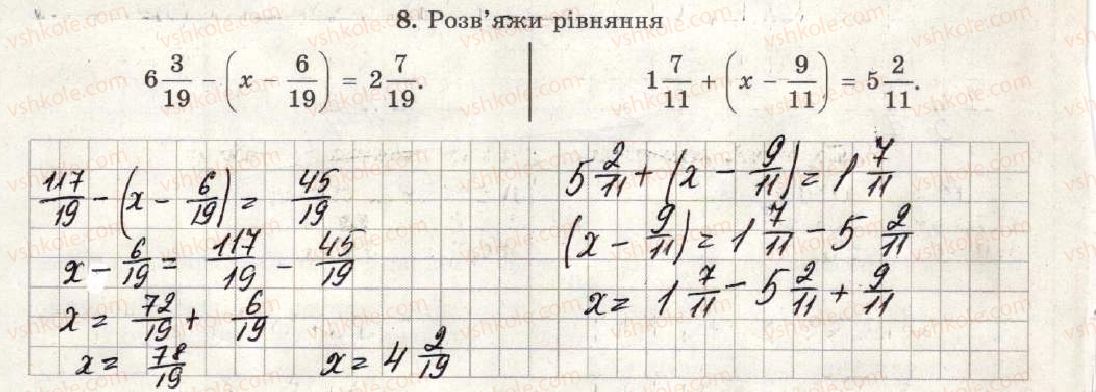 8. Розв'яжи рівняння
6 3/19 − (x − 6/19) = 2 7/19.
1 7/11 + (x − 9/11) = 5 2/11.
117/19 − (x − 6/19) = 45/19
x − 6/19 = 117/19 − 45/19
x = 72/19 + 6/19
x = 78/19 x = 4 2/19
5 2/11 + (x − 9/11) = 1 7/11
(x − 9/11) = 1 7/11 − 5 2/11
x = 1 7/11 − 5 2/11 + 9/11
vshkole.com